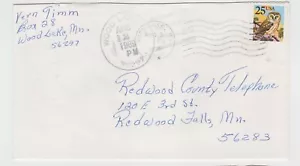 Vern Timm
Box 28
Wood Lake, Mn.
56297
1989
PM
25 USA
Redwood County Telephone
120 E 3rd St.
Redwood Falls, Mn.
56283